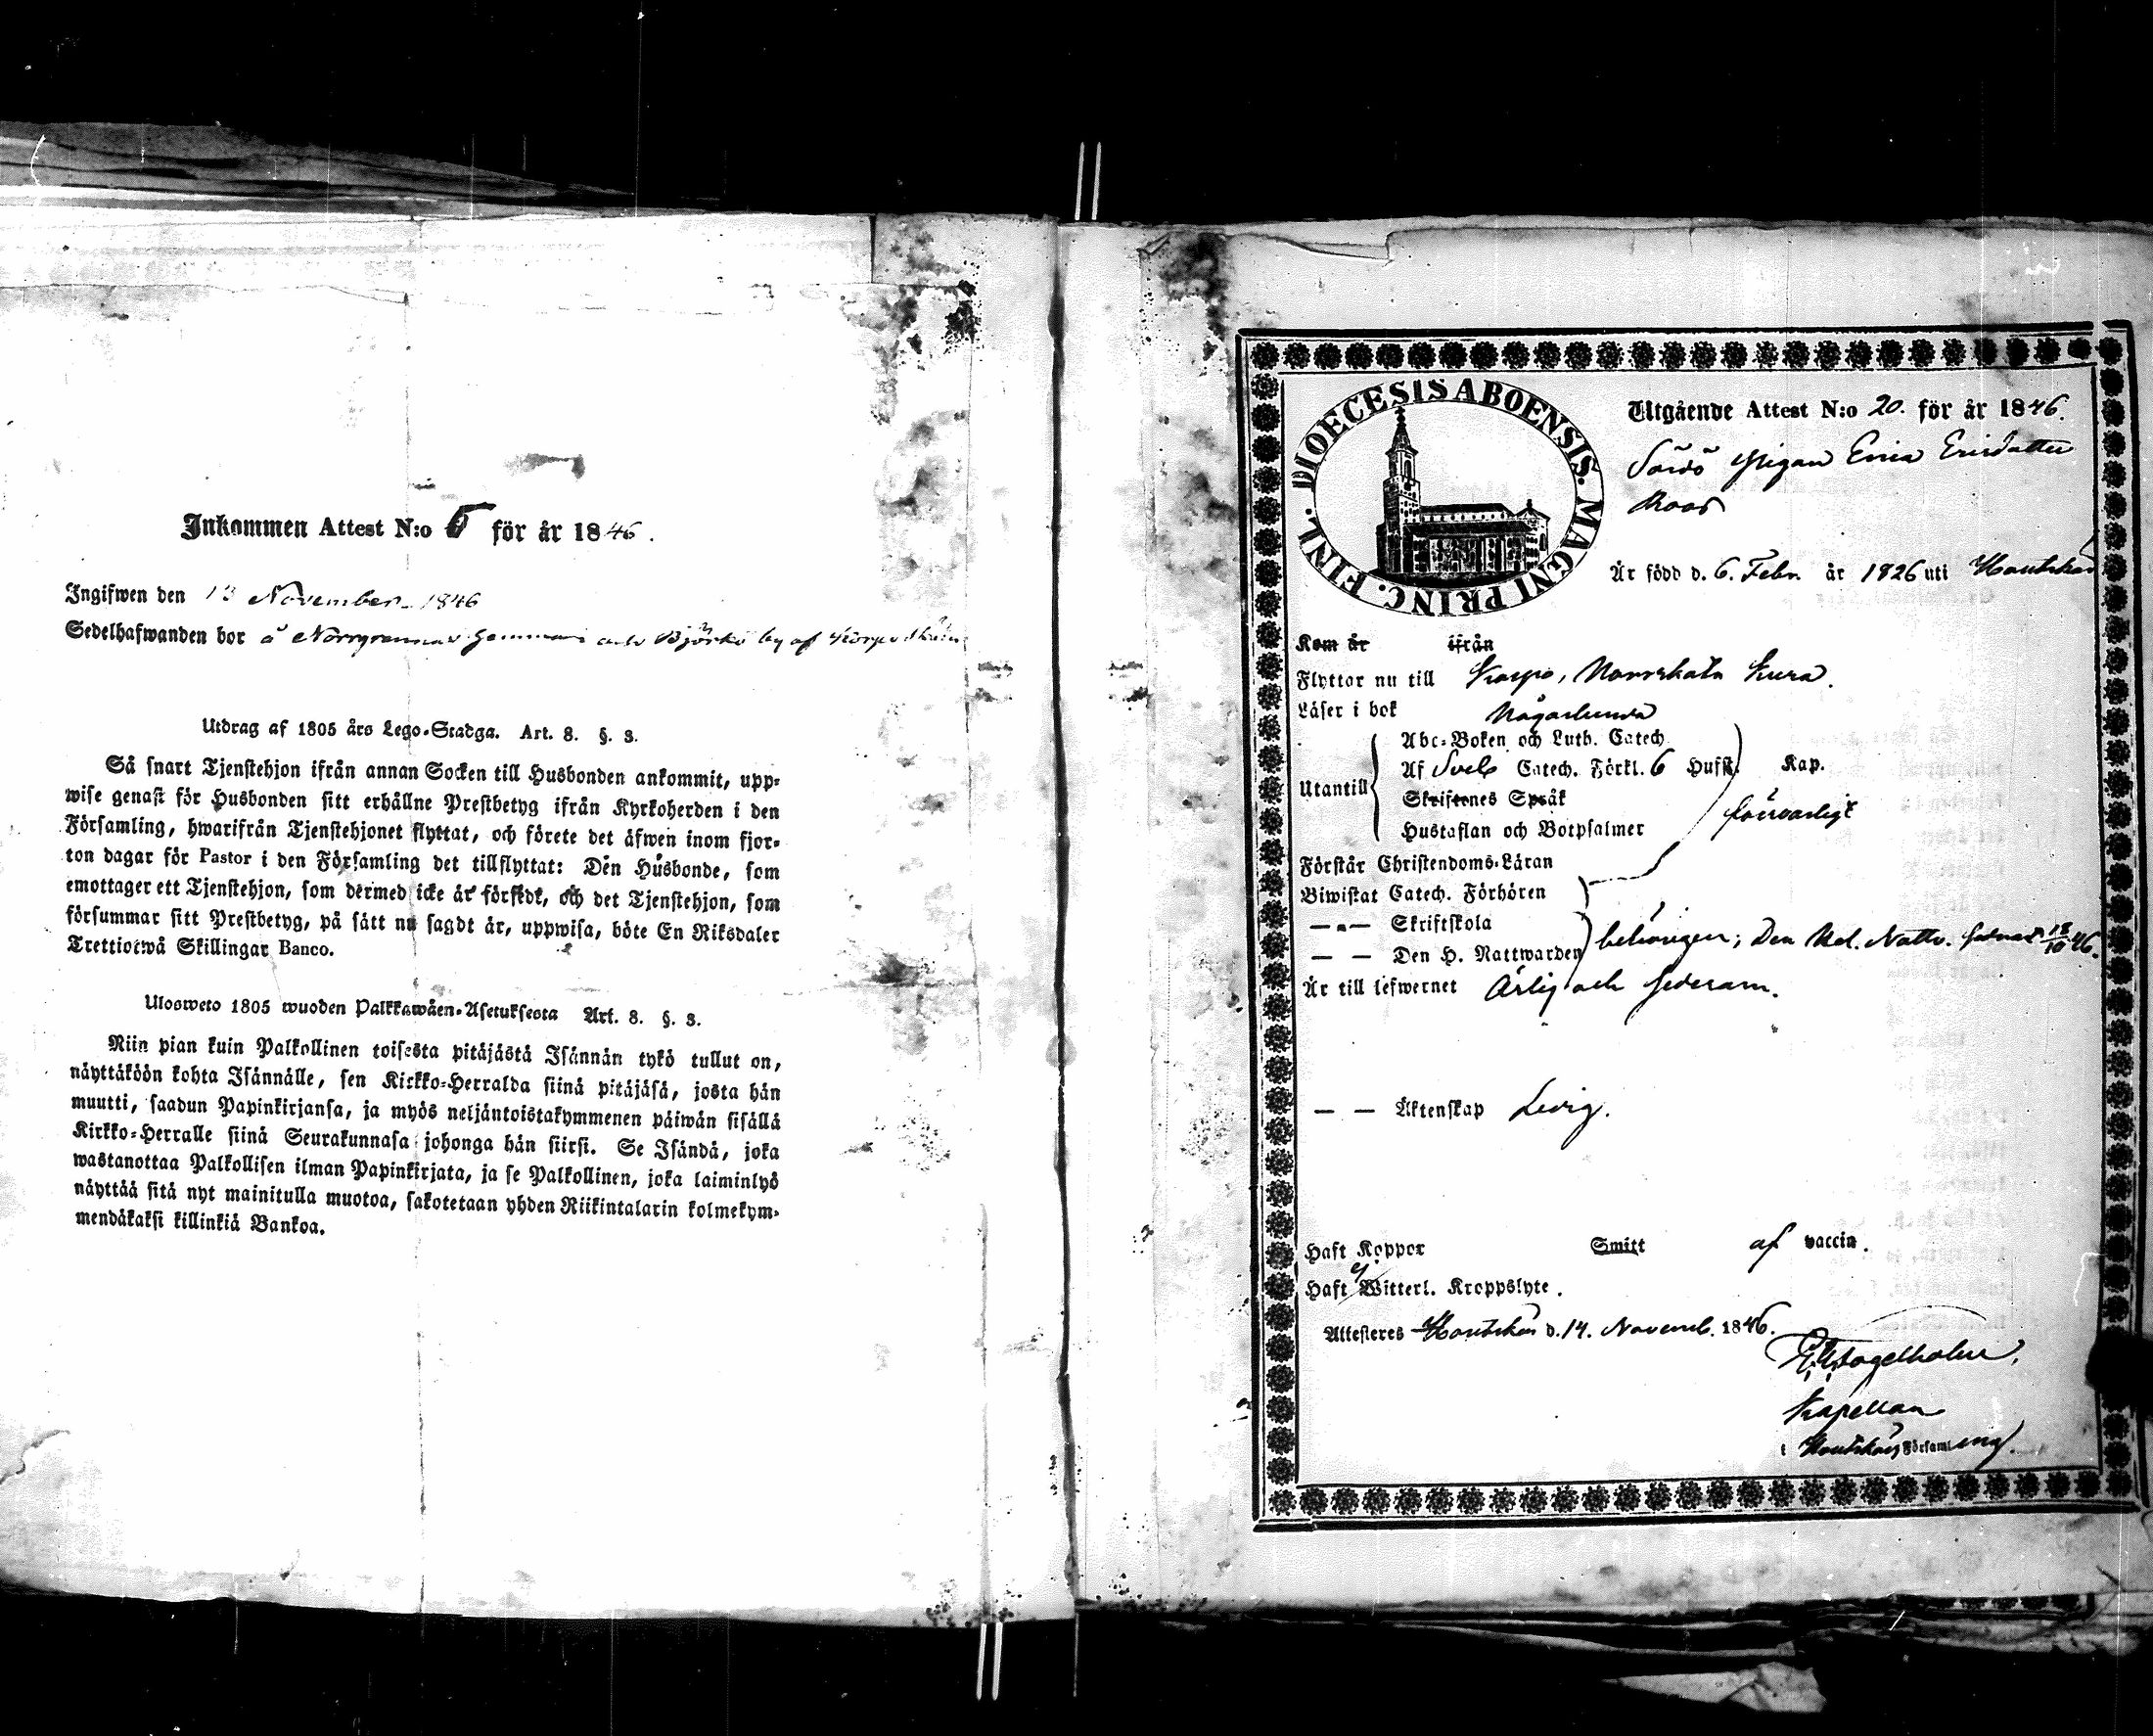 Inkommen Attest N:o 6 för år 1846.
Ingifwen den 13 November 1846
Sedelhafwanden bor å Norrgrannas hemman och Björkö by af Korpo
Utdrag af 1805 års Lego-Stadga. Art. 8. §. 3.
Så snart Tjenstehjon ifrån annan Socken till Husbonden ankommit, upp-
wise genast för Husbonden sitt erhållne Prestbetyg ifrån Kyrkoherden i den
Församling, hwarifrån Tjenstehjonet flyttat, och förete det äfwen inom fjor-
ton dagar för Pastor i den Församling det tillflyttat: Den Husbonde, som
emottager ett Tjenstehjon, som dermed icke är försedt, och det Tjenstehjon, som
försummar sitt Prestbetyg, på sätt nu sagdt är, uppwisa, böte En Riksdaler
Trettiotwå Skillingar Banco.
Ulosweto 1805 wuoden Palkkawäen-Asetuksesta Art. 8. §. 3.
Niin pian kuin Palkollinen toisesta pitäjästä Isännän tykö tullut on,
näyttäköön kohta Isännälle, sen Kirkko-Herralda siinä pitäjäsä, josta hän
muutti, saadun Papinkirjansa, ja myös neljäntoistakymmenen päiwän sisällä
Kirkko-Herralle siinä Seurakunnasa johonga hän siirsi. Se Isändä, joka
wastanottaa Palkollisen ilman Papinkirjata, ja se Palkollinen, joka laiminlyö
näyttää sitä nyt mainitulla muotoa, sakotetaan yhden Riikintalarin kolmekym-
mendäkaksi killinkiä Bankoa.
DIOECESIS ABOENSIS. MAGNI PRINC. FINL.
Utgående Attest N:o 20. för år 1846.
Pigan Erica Ersdatter
Roos
Är född d. 6. Febr. år 1826 uti Houtskär
Kom år ifrån
Flyttar nu till Korpo, Norrskata
Läser i bok någorlunda
Abc-Boken och Luth. Catech.
Utantill Af Sveb. Catech. Förkl. 6 Hufst. Kap.
Skriftenes Språk
Hustaflan och Botpsalmer försvarligt
Förstår Christendoms-Läran
Biwistat Catech. Förhören
— „ — Skriftskola
— — Den H. Nattwarden behörigen; Den Hel. Nattv. sednast 18/10 46.
Är till lefwernet Ärlig och sedesam.
— — Äktenskap Ledig.
Haft Koppor Smitt af vaccin.
Haft ej Witterl. Kroppslyte.
Attesteras Houtskär d. 14. Novemb. 1846.
Fagelholm.
Kapellan
i Houtskärs Församling.